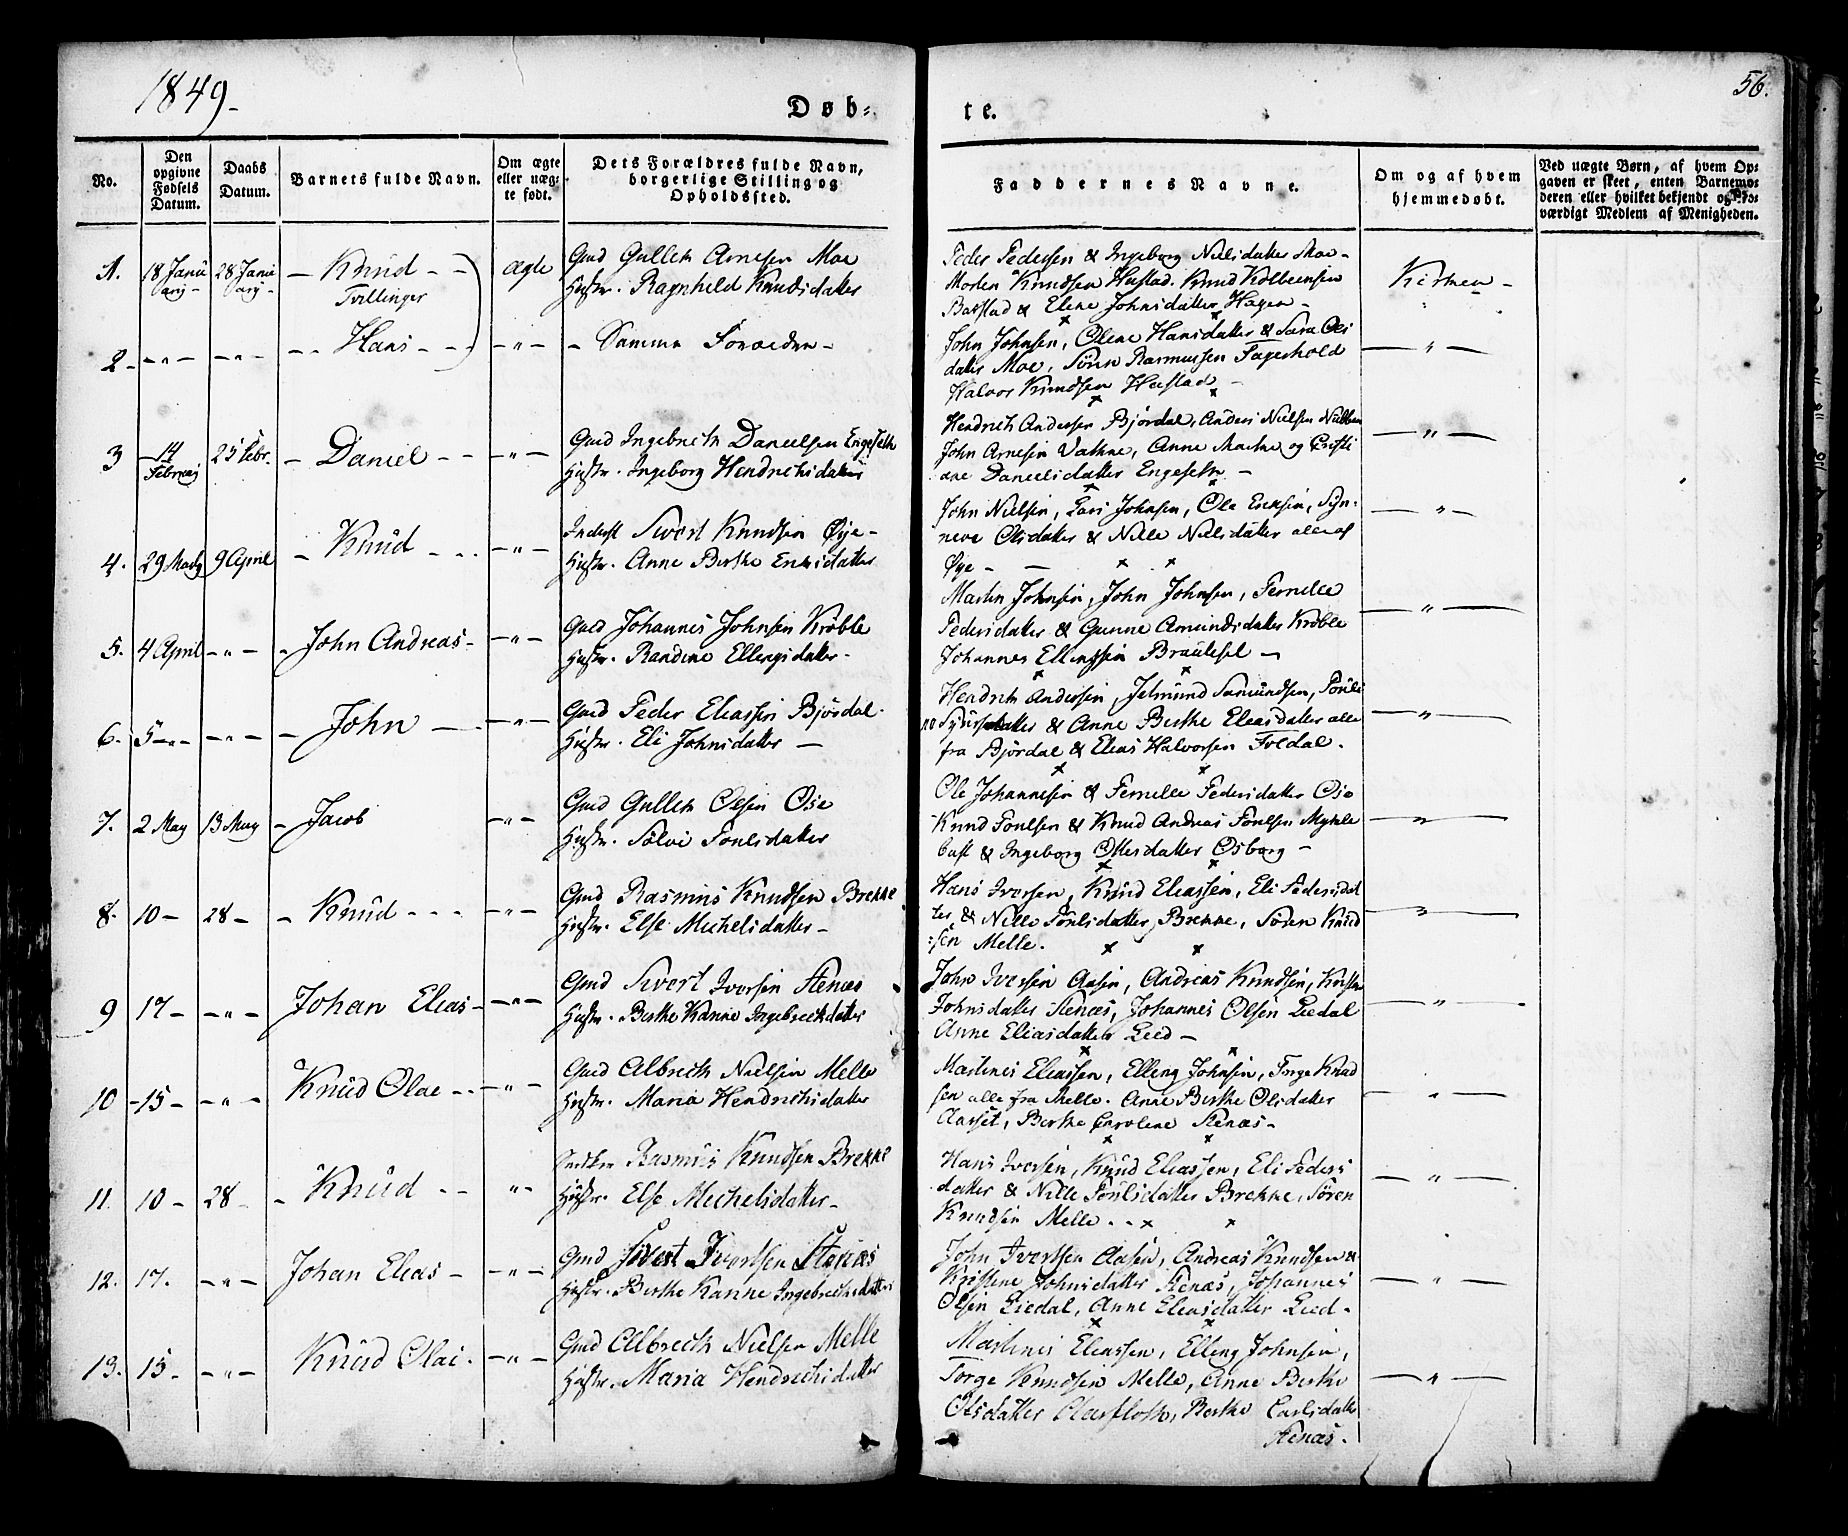 1849.
56.
Døb-
te.
No.
Den opgivne Fødsels Datum.
Daabs Datum.
Barnets fulde Navn.
Om ægte eller uæg-te født.
Dets Forældres fulde Navn, borgerlige Stilling og Opholdssted.
Faddernes Navne.
Om og af hvem hjemmedøbt.
Ved uægte Børn, af hvem Op-
gaven er skeet, enten Barnemo-
deren eller hvilket bekjendt og tro-
værdigt Medlem af Menigheden.
1. 18 Janu 28 Janu - Knud - - ægte Gmd Gullek Arnesen Moe
Tvillinger Hustr. Ragnhild Knudsdatter
Peder Pedersen & Ingeborg Nielsdatter Moe -
Morten Knudsen Hustad. Knud Kolbeensen
Barstad & Elene Johnsdatter Hagen -
Kirken -
2 - - " - - " - - - Hans - - - " - - Samme Forældre -
John Johnsen, Olene Hansdatter & Sara Ols
datter Moe, Rasmussen Fagerhold
Halvor Knudsen Hustad -
- " -
3 14 Februarj 25 Febr. - Daniel - - - " - Gmd Ingebrecth Danielsen Engeseth
Hustr. Ingeborg Hendrichsdatter
Hendrich Andersen Bjørdal, Anders Nielsen
John Arnesen Vathne, Anne Marthe og Christi
ane Danielsdatter Engeseth -
- " -
4. 29 Marty 9 April - Knud - - - - " - Inderst Sivert Knudsen Øye -
Hustr. Anne Berthe Erichsdatter
John Nielsen, Lars Johnsen, Ole Ericksen, Syn-
neve Olsdatter & Nille Nielsdatter alle af
Øye - -
- " -
5. 4 April - " - - John Andreas - - " - Gmd Johannes Johnsen Krøble
Hustr. Randine Ellengsdatter -
Martin Johnsen, John Johnsen, Pernille
Pedersdatter & Gunne Amundsdatter Krøble
Johannes Ellingsen Brauteset -
- " -
6. 5 - " - - " - - John - - " - Gmd Peder Eliassen Bjørdal.
Hustr. Eli Johnsdatter -
Hendrich Andersen, Jetmund Samundsen,
datter & Anne Berthe Eliasdatter alle
fra Bjørdal & Elias Halvorsen Foldal.
- " -
7. 2 May 13 May - Jacob - " - Gmd Gullek Olsen Ose
Hustr. Sølvi Poulsdatter
Ole Johannesen & Pernille Pedersdatter Ose
Knud Poulsen & Knud Andreas Poulsen Mykle
bust & Ingeborg Ottesdatter Osborg -
- " -
8. 10 - 28 - - Knud - - - - " - Gmd Rasmus Knudsen Brekke
Hustr. Else Michelsdatter -
Hans Iversen, Knud Eliassen, Eli Pedersdat
ter, & Nille Poulsdatter, Brekke, Søren Knud
sen Melle.
- " -
9 17 - - " - Johan Elias - - " - Gmd Sivert Iversen Stenæs
Hustr. Berthe Kanne Ingebrecthdatter
John Iversen Aasen, Andreas Knudsen, Kirsten
Johnsdatter Stenæs, Johannes Olsen Liedal
Anne Eliasdatter Lied -
- " -
10 - 15 - - " - Knud Olae - - - " - Gmd Albrecth Nielsen Melle
Hustr. Maria Hendrichsdatter
Martines Eliassen, Elleng Johnsen, Torge Knud
sen alle fra Melle. Anne Berthe Olsdatter
Aarset, Berthe Caroline Stenæs -
- " -
11. 10 - 28 - - Knud - - " - Rasmus Knudsen Brekke
Hustr. Else Michelsdatter -
Hans Iversen, Knud Eliassen, Eli Peders
datter & Nille Poulsdatter Brekke, Søren
Knudsen Melle. - -
- " -
12. 17. - " - Johan Elias - - " - Gmd Sivert Ivertsen Stenæs
Hustr. Berthe Kanne Ingebrechtsdatter
John Ivertsen Aasen, Andreas Knudsen &
Kristine Johnsdatter Stenæs, Johannes
Olsen Liedal, Anne Eliasdatter Lied -
- " -
13. 15 - - " - Knud Olai - - " - Gmd Albrecth Nielsen Melle
Hustr. Maria Hendrechsdatter
Martines Eliassen, Elleng Johnsen,
Torge Knudsen Melle, Anne Berthe
Olsdatter Aarfloth, Berthe Carlsdatter
Stenæs -
- " -